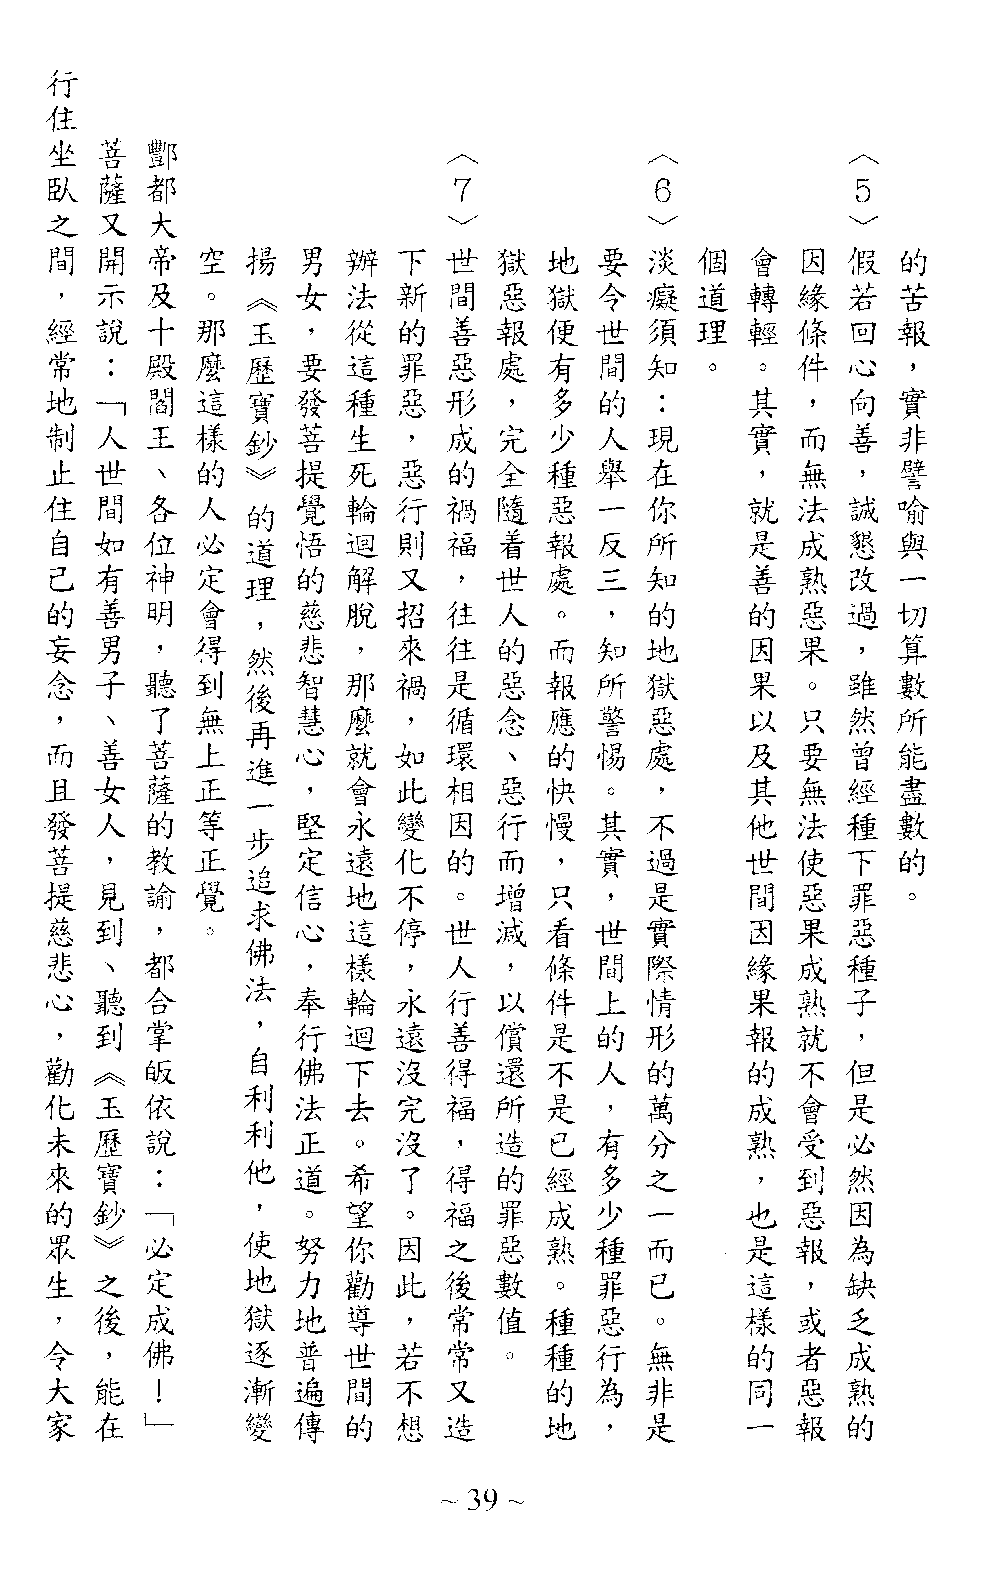 的苦報，實非譬喻與一切算數所能盡數的。
〈5〉假若回心向善，誠懇改過，雖然曾經種下罪惡種子，但是必然因為缺乏成熟的
因緣條件，而無法成熟惡果。只要無法使惡果成熟就不會受到惡報，或者惡報
會轉輕。其實，就是善的因果以及其他世間因緣果報的成熟，也是這樣的同一
個道理。
〈6〉淡癡須知：現在你所知的地獄惡處，不過是實際情形的萬分之一而已。無非是
要令世間的人舉一反三，知所警惕。其實，世間上的人，有多少種罪惡行為，
地獄便有多少種惡報處。而報應的快慢，只看條件是不是已經成熟。種種的地
獄惡報處，完全隨着世人的惡念、惡行而增減，以償還所造的罪惡數值。
〈7〉世間善惡形成的禍福，往往是循環相因的。世人行善得福，得福之後常常又造
下新的罪惡，惡行則又招來禍，如此變化不停，永遠沒完沒了。因此，若不想
辦法從這種生死輪迴解脫，那麼就會永遠地這樣輪迴下去。希望你勸導世間的
男女，要發菩提覺悟的慈悲智慧心，堅定信心，奉行佛法正道。努力地普遍傳
揚《玉歷寶鈔》的道理，然後再進一步追求佛法，自利利他，使地獄逐漸變
空。那麼這樣的人必定會得到無上正等正覺。
酆都大帝及十殿閻王、各位神明，聽了菩薩的教諭，都合掌皈依說：「必定成佛！」
菩薩又開示說：「人世間如有善男子、善女人，見到、聽到《玉歷寶鈔》之後，能在
行住坐臥之間，經常地制止住自己的妄念，而且發菩提慈悲心，勸化未來的眾生，令大家
~ 39 ~